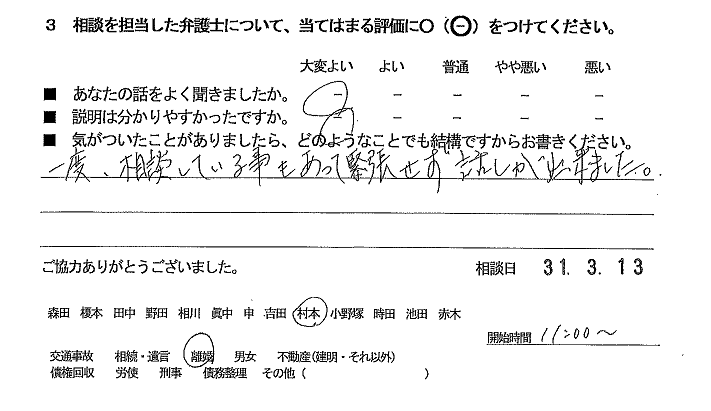 3 相談を担当した弁護士について、当てはまる評価に○（㊀）をつけてください。
大変よい よい 普通 やや悪い 悪い
■ あなたの話をよく聞きましたか。 − − − − −
■ 説明は分かりやすかったですか。 − − − − −
■ 気がついたことがありましたら、どのようなことでも結構ですからお書きください。
一度、相談している事もあって緊張せず話しが出来ました。
ご協力ありがとうございました。 相談日 31. 3. 13
森田 榎本 田中 野田 相川 眞中 申 吉田 村本 小野塚 時田 池田 赤木
開始時間 11:00〜
交通事故 相続・遺言 離婚 男女 不動産(建明・それ以外)
債権回収 労使 刑事 債務整理 その他 ( )